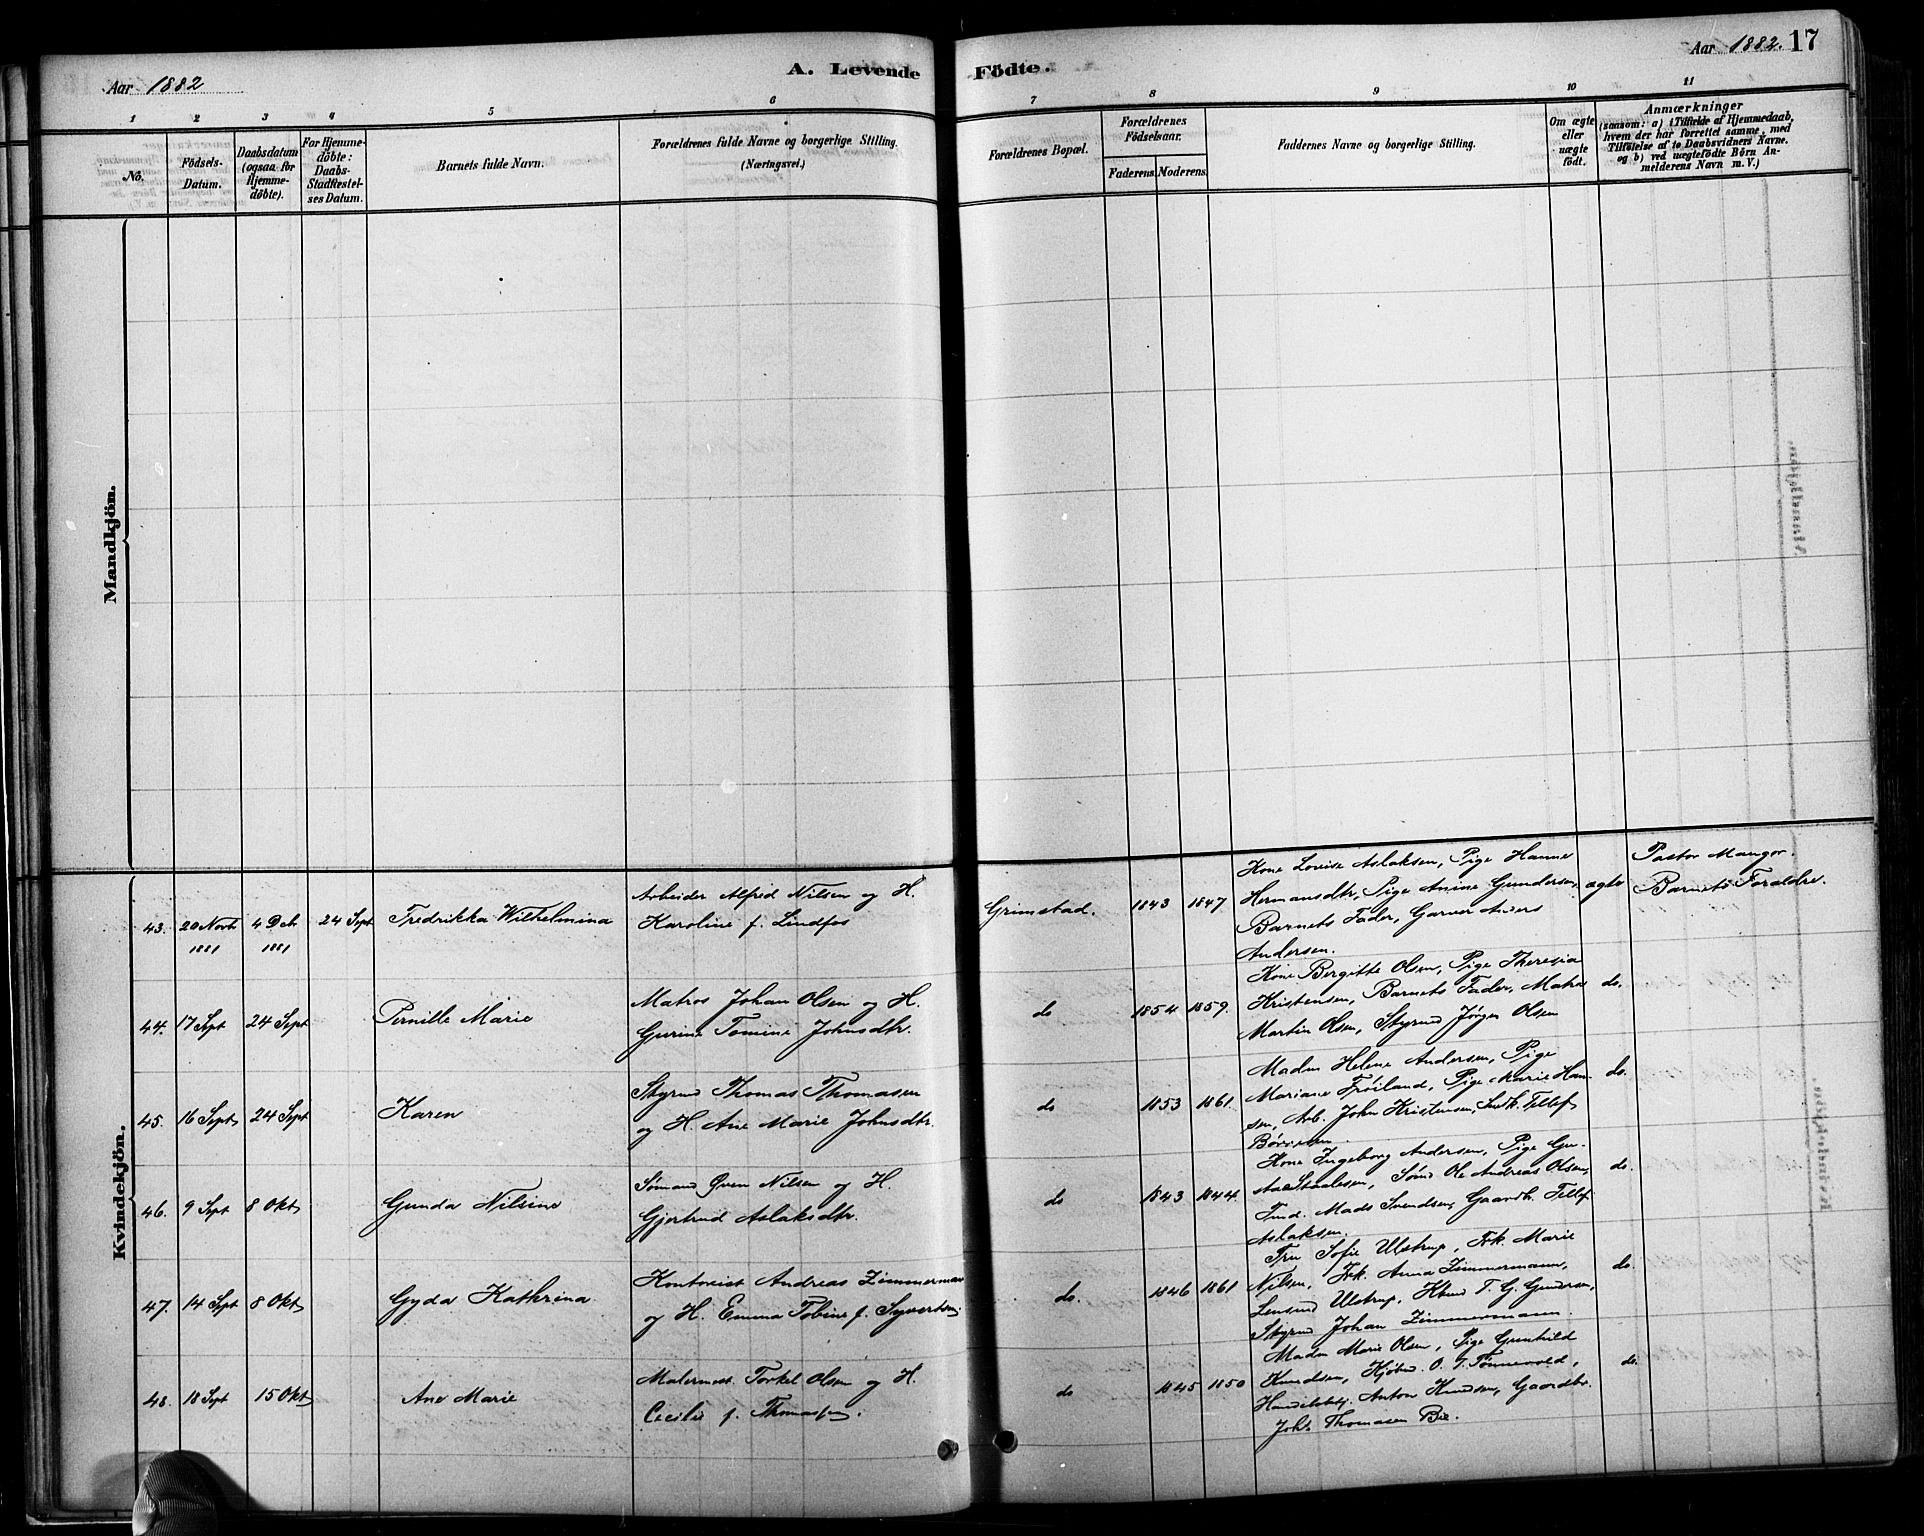 Aar 1882
A. Levende
Födte.
Aar 1882. 17
1 2 3 4 5 6 7 8 9 10 11
No.
Födsels-
Datum.
Daabsdatum
(ogsaa for
Hjemme-
döbte).
For Hjemme-
döbte:
Daabs-
Stadfæstel-
ses Datum.
Barnets fulde Navn.
Forældrenes fulde Navne og borgerlige Stilling.
(Næringsvei.)
Forældrenes Bopæl.
Forældrenes
Födselsaar.
Faderens. Moderens.
Faddernes Navne og borgerlige Stilling.
Om ægte
eller
uægte
födt.
Anmærkninger
(saasom: a) i Tilfælde af Hjemmedaab,
hvem der har forrettet samme, med
Tilföielse af to Daabsvidners Navne.
og b) ved uægtefödte Börn An-
melderens Navn m. V.)
Mandkjön.
Kvindekjön.
43. 20 Novb 1881
4 Deb 1881
24 Sept
Fredrikka Wilhelmina
Arbeider Alfred Nilsen og H.
Karoline f. Lindfos
Grimstad.
1843 1847
Kone Lovise Aslaksen, Pige Hanne
Hermansdtr, Pige Anine Gundersen,
Barnets Fader, Garver Anders
Andersen.
ægte
Pastor Mangor.
Barnets Forældre.
44. 17 Sept 24 Sept
Pernille Marie
Matros Johan Olsen og H.
Gurine Tomine Johnsdtr.
do
1854 1859.
Kone Bergitte Olsen, Pige Theresia
Kristensen, Barnets Fader, Matro
Martin Olsen, Styrmd Jørgen Olsen
do.
45. 16 Sept 24 Sept
Karen
Styrmd Thomas Thomasen
og H. Ane Marie Johnsdtr.
do
1853 1861.
Madm Helene Andersen, Pige
Mariane Frøiland, Pige Marie Han-
sen, Arb. John Kristensen, Smdk. Tellef
Børresen.
do.
46. 9 Sept 8 Okt
Gunda Nilsine
Sømand Sven Nilsen og H.
Gjertrud Aslaksdtr.
do
1843 1844.
Kone Ingeborg Andersen, Pige Gu-
sta Staalesen, Sømd Ole Andreas Olsen,
Tmd. Mads Svendsen, Gaardb. Tellef
Aslaksen.
do.
47. 14 Sept 8 Okt
Gyda Kathrina
Kontorist Andreas Zimmerman
og H. Emma Tobine f. Syvertsen.
do.
1846 1861
Fru Sofie Ulstrup, Frk. Marie
Nilsen, Frk. Anna Zimmermann,
Lensmd Ulstrup, Kbmd T. G. Gundersen,
Styrmd Johan Zimmermann.
do.
48. 18 Sept 15 Okt
Ane Marie
Malermest. Torkel Olsen og H.
Cecilie f. Thomassen.
do
1845 1850
Madm Marie Olsen, Pige Gunhild
Knudsen, Kjøbmd. O. T. Tønnevold,
Handelsbtj. Anton Knudsen, Gaardbr.
Joh. Thomasen Bie.
do.